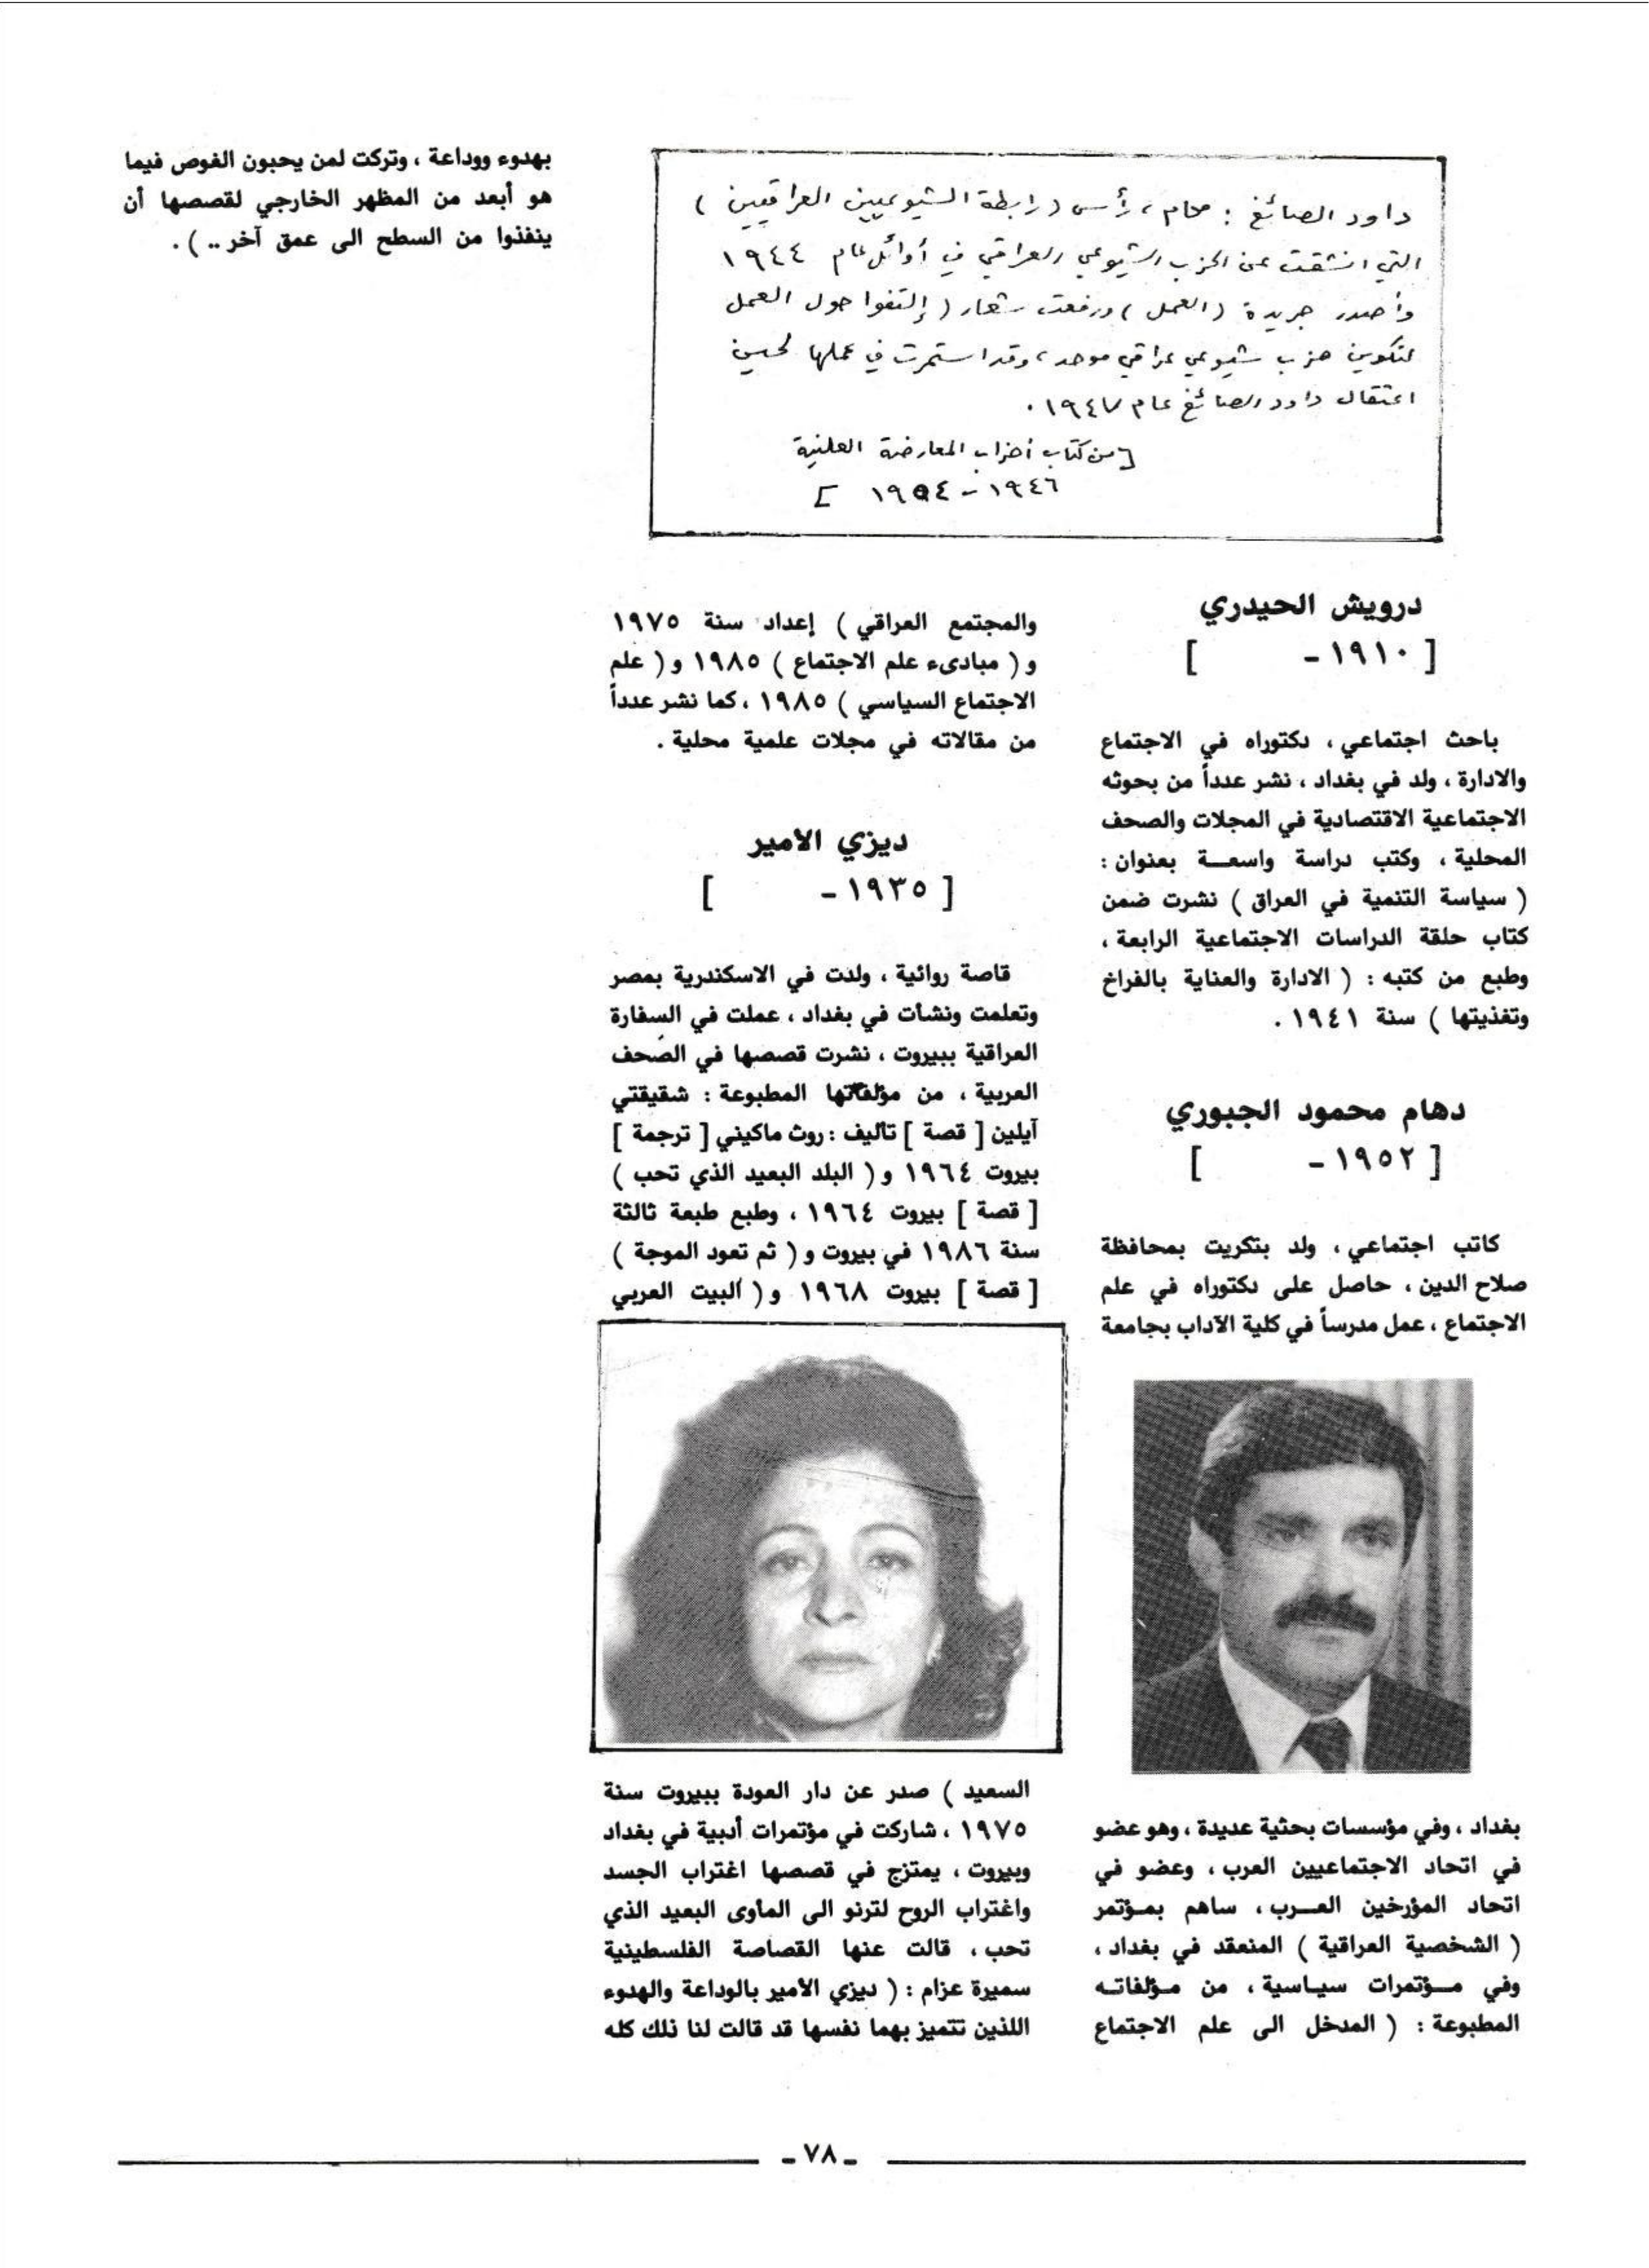 داود الصائغ : محام ، رأس ( رابطة الشيوعيين العراقيين )
التي انشقت عن الحزب الشيوعي العراقي في أوائل عام ١٩٤٤
وأصدر جريدة ( العمل ) ورفعت شعار ( إلتفوا حول العمل
لتكوين حزب شيوعي عراقي موحد ، وقد استمرت في عملها لحين
اعتقال داود الصائغ عام ١٩٤٧ .
[ من كتاب أحزاب المعارضة العلنية
١٩٤٦ - ١٩٥٤ ]
درويش الحيدري
[ ١٩١٠ - ]
باحث اجتماعي ، دكتوراه في الاجتماع
والادارة ، ولد في بغداد ، نشر عدداً من بحوثه
الاجتماعية الاقتصادية في المجلات والصحف
المحلية ، وكتب دراسة واسعـــة بعنوان :
( سياسة التنمية في العراق ) نشرت ضمن
كتاب حلقة الدراسات الاجتماعية الرابعة ،
وطبع من كتبه : ( الادارة والعناية بالفراخ
وتغذيتها ) سنة ١٩٤١ .
دهام محمود الجبوري
[ ١٩٥٢ - ]
كاتب اجتماعي ، ولد بتكريت بمحافظة
صلاح الدين ، حاصل على دكتوراه في علم
الاجتماع ، عمل مدرساً في كلية الآداب بجامعة
بغداد ، وفي مؤسسات بحثية عديدة ، وهو عضو
في اتحاد الاجتماعيين العرب ، وعضو في
اتحاد المؤرخين العـــرب ، ساهم بمـؤتمر
( الشخصية العراقية ) المنعقد في بغداد ،
وفي مـــؤتمرات سيـاسية ، من مـؤلفاتـه
المطبوعة : ( المدخل الى علم الاجتماع
والمجتمع العراقي ) إعداد سنة ١٩٧٥
و ( مبادىء علم الاجتماع ) ١٩٨٥ و ( علم
الاجتماع السياسي ) ١٩٨٥ ، كما نشر عدداً
من مقالاته في مجلات علمية محلية .
ديزي الامير
[ ١٩٣٥ - ]
قاصة روائية ، ولدت في الاسكندرية بمصر
وتعلمت ونشأت في بغداد ، عملت في السفارة
العراقية ببيروت ، نشرت قصصها في الصحف
العربية ، من مؤلفاتها المطبوعة : شقيقتي
آيلين [ قصة ] تأليف : روث ماكيني [ ترجمة ]
بيروت ١٩٦٤ و ( البلد البعيد الذي تحب )
[ قصة ] بيروت ١٩٦٤ ، وطبع طبعة ثالثة
سنة ١٩٨٦ في بيروت و ( ثم تعود الموجة )
[ قصة ] بيروت ١٩٦٨ و ( البيت العربي
السعيد ) صدر عن دار العودة ببيروت سنة
١٩٧٥ ، شاركت في مؤتمرات أدبية في بغداد
وبيروت ، يمتزج في قصصها اغتراب الجسد
واغتراب الروح لترنو الى المأوى البعيد الذي
تحب ، قالت عنها القصاصة الفلسطينية
سميرة عزام : ( ديزي الامير بالوداعة والهدوء
اللذين تتميز بهما نفسها قد قالت لنا ذلك كله
بهدوء ووداعة ، وتركت لمن يحبون الغوص فيما
هو أبعد من المظهر الخارجي لقصصها أن
ينفذوا من السطح الى عمق آخر .. ) .
- ٧٨ -